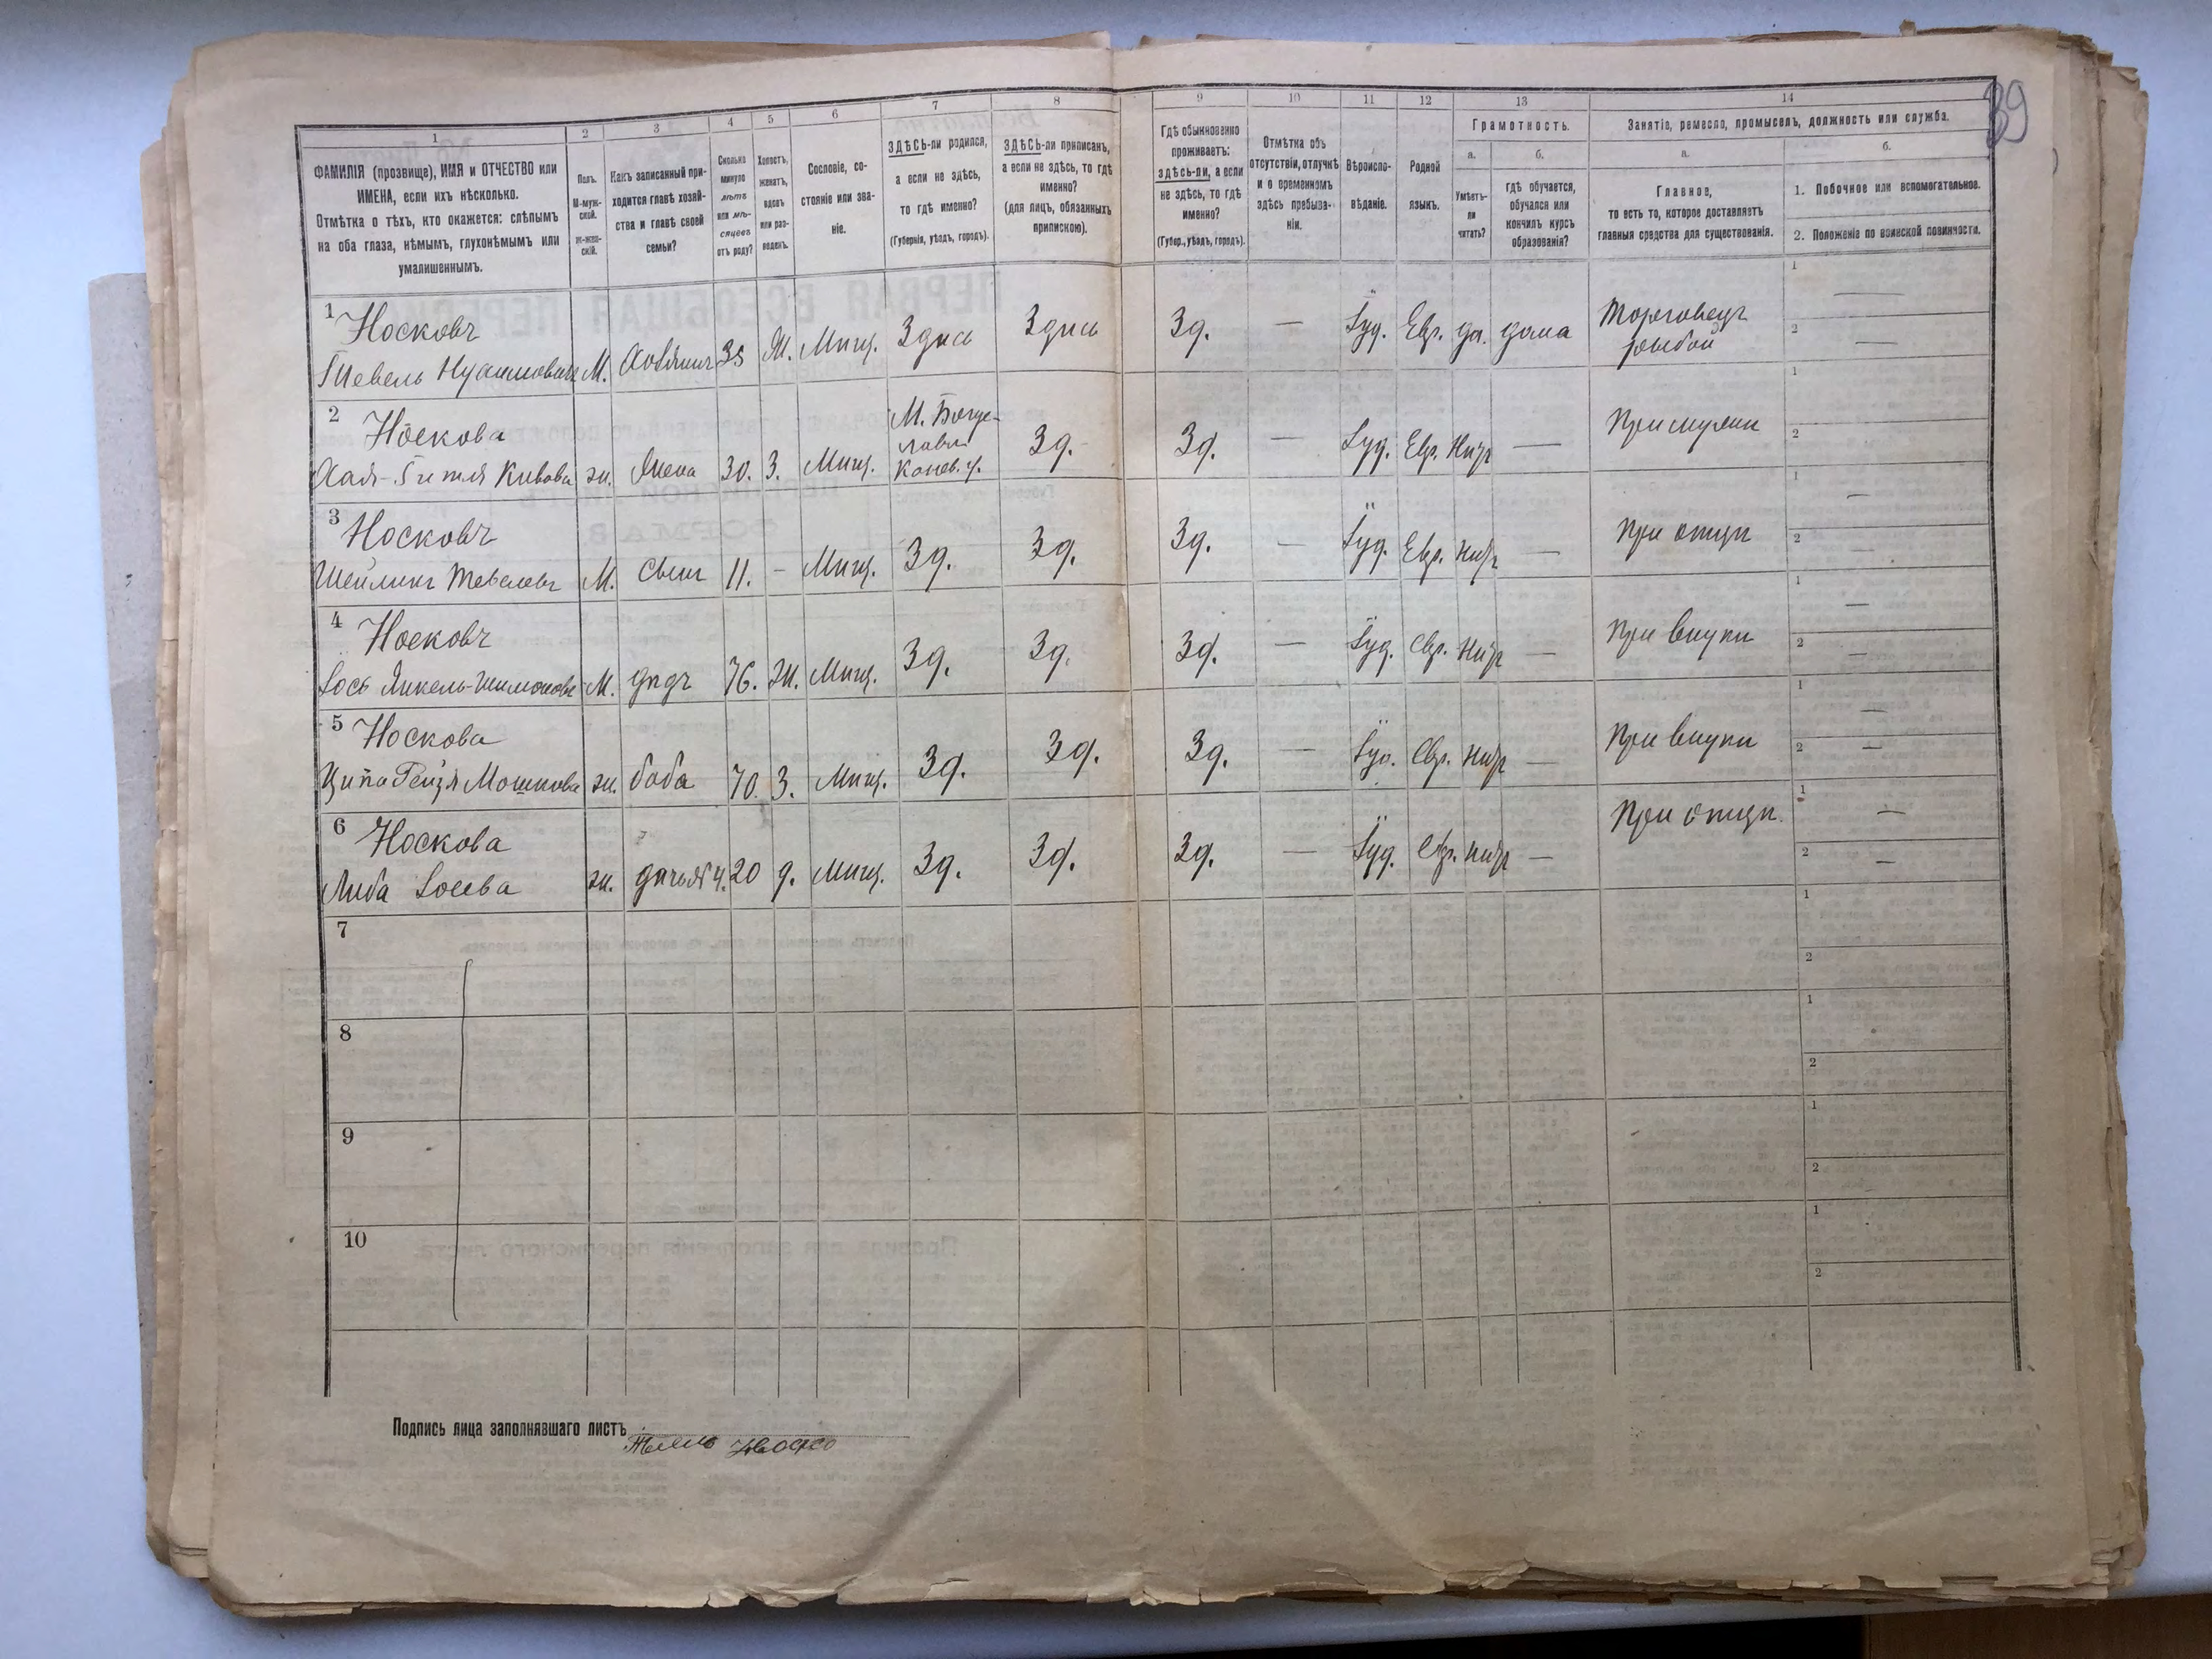 39
1 2 3 4 5 6 7 8 9 10 11 12 13 14
ФАМИЛІЯ (прозвище), ИМЯ и ОТЧЕСТВО или
ИМЕНА, если ихъ нѣсколько.
Отмѣтка о тѣхъ, кто окажется: слѣпымъ
на оба глаза, нѣмымъ, глухонѣмымъ или
умалишеннымъ.
Полъ.
М-муж-
ской.
Ж-жен-
скій.
Какъ записанный при-
ходится главѣ хозяй-
ства и главѣ своей
семьи?
Сколько
минуло
лѣтъ
или мѣ-
сяцевъ
отъ роду?
Холостъ,
женатъ,
вдовъ
или раз-
веденъ.
Сословіе, со-
стояніе или зва-
ніе.
ЗДѢСЬ-ли родился,
а если не здѣсь,
то гдѣ именно?
(Губернія, уѣздъ, городъ).
ЗДѢСЬ-ли приписанъ,
а если не здѣсь, то гдѣ
именно?
(для лицъ, обязанныхъ
припискою).
Гдѣ обыкновенно
проживаетъ:
здѣсь-ли, а если
не здѣсь, то гдѣ
именно?
(Губер., уѣздъ, городъ).
Отмѣтка объ
отсутствіи, отлучкѣ
и о временномъ
здѣсь пребыва-
ніи.
Вѣроиспо-
вѣданіе.
Родной
языкъ.
Грамотность.
а. б.
Умѣетъ-
ли
читать?
гдѣ обучается,
обучался или
кончилъ курсъ
образованія?
Занятіе, ремесло, промыселъ, должность или служба.
а. б.
Главное,
то есть то, которое доставляетъ
главныя средства для существованія.
1. Побочное или вспомогательное.
2. Положеніе по воинской повинности.
1 Носковъ
Тевель М. 35 М. Мищ. Здись Здись Зд. — Іуд. Евр. да. дома Торговецъ рыбой 1 — 2 —
2 Носкова
Хая- Кивова ж. Жена 30. З. Мищ. М. Богуславъ Канев. у. Зд. Зд. — Іуд. Евр. Нитъ — При мужи 1 2
3 Носковъ
М. Сынъ 11. - Мищ. Зд. Зд. Зд. — Іуд. Евр. нитъ — При отци 1 — 2 —
4 Носковъ
Іось Янкель-Шимоновъ М. дидъ 76. Ж. Мищ. Зд. Зд. Зд. — Іуд. Евр. Нитъ — При внуки 1 — 2 —
5 Носкова
Ципа Мошкова ж. баба 70. З. Мищ. Зд. Зд. Зд. — Іуд. Евр. Нитъ — При внуки 1 — 2 —
6 Носкова
Либа Іосева ж. дичь № 4. 20 д. Мищ. Зд. Зд. Зд. — Іуд. Евр. Нитъ — При отци. 1 — 2 —
7 1 2
8 1 2
9 1 2
10 1 2
Подпись лица заполнявшаго листъ